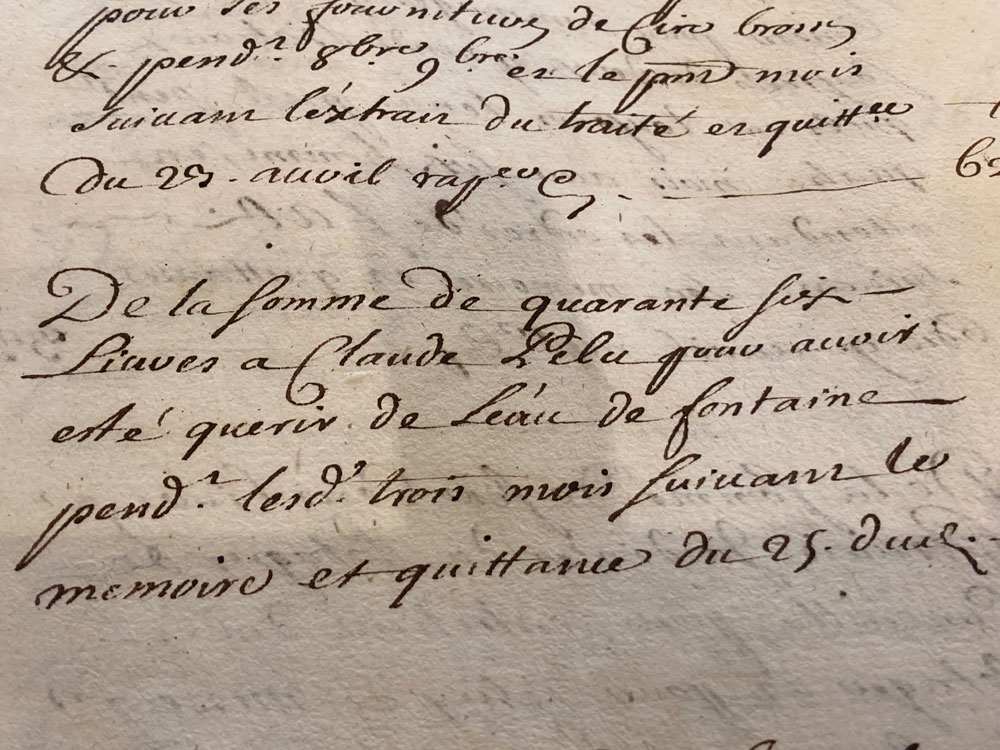 pour ses fournitures de Cire brosses
&. pend.t 8bre 9bre et le pnt mois
suivant l'éxtrait du traité et quitt.ce
Du 23. avril rap.co
De la somme de quarante six
Liures a Claude Pelu pour auoir
esté querir de L'eáu de fontaine
pend.t lesd.s trois mois suiuant le
memoire et quittance du 25. dud.